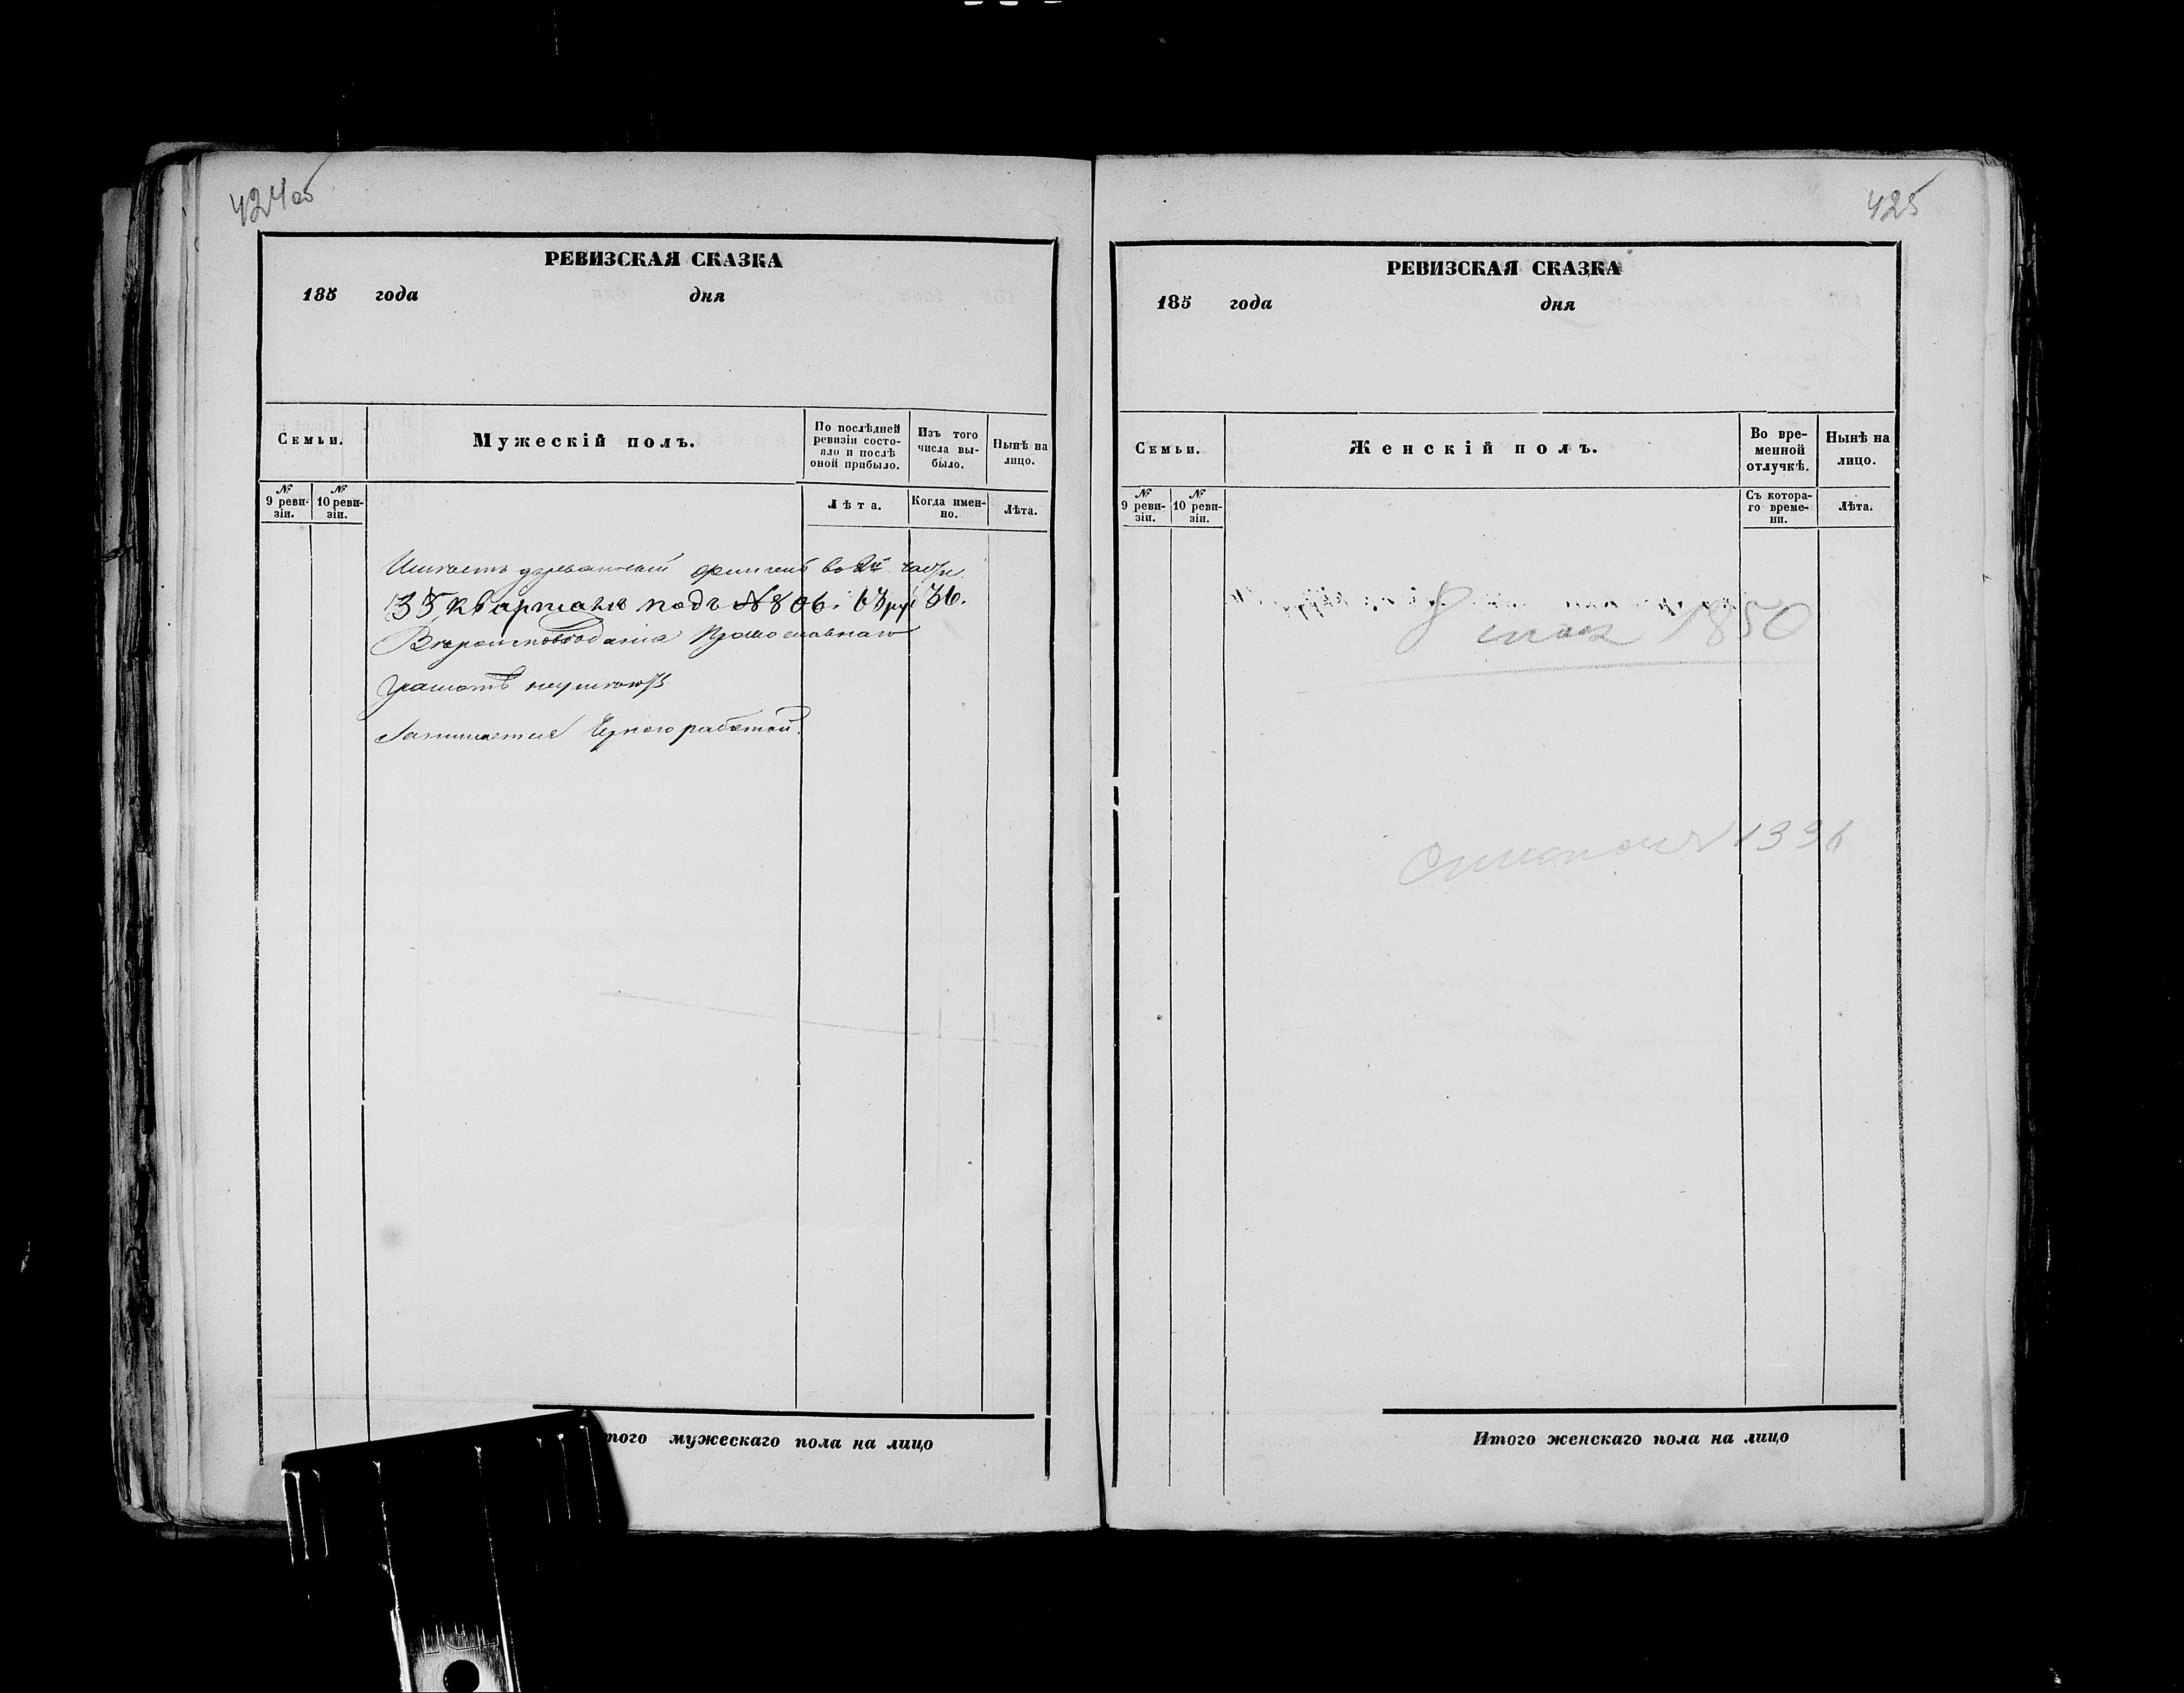 424об
РЕВИЗСКАЯ СКАЗКА
185 года дня
Семьи.
Мужескій полъ.
По послѣдней ревизіи состо-
яло и послѣ
оной прибыло.
Изъ того
числа вы-
было.
Нынѣ на
лицо.
№
9 реви-
зіи.
№
10 реви-
зіи.
Лѣта.
Когда имен-
но.
Лѣта.
Имѣетъ деревянный флигель во 2й части
35, квартала подъ №806. 63 руб 36.
Вѣроисповѣданія Православнаго
Грамотѣ неумеютъ
Занимается Черною работой.
того мужескаго пола на лицо
425
РЕВИЗСКАЯ СКАЗКА
185 года дня
Семьи.
Женскій полъ.
Во вре-
менной
отлучкѣ.
Нынѣ на
лицо.
№
9 реви-
зіи.
№
10 реви-
зіи.
Съ котора-
го време-
ни.
Лѣта.
1850
1336
Итого женскаго пола на лицо